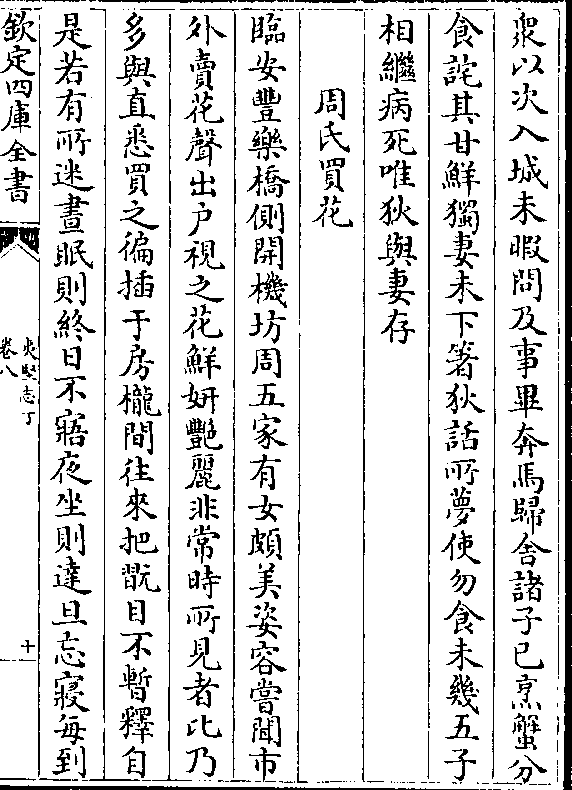 衆以次入城未暇問及事畢奔馬歸舍諸子已烹蟹分
食詫其甘鮮獨妻未下箸狄話所夢使勿食未幾五子
相繼病死唯狄與妻存
周氏買花
臨安豐樂橋側開機坊周五家有女頗美姿容嘗聞市
外賣花聲出户視之花鮮妍艷麗非常時所見者比乃
多與直悉買之徧插于房櫳間往來把翫目不暫釋自
是若有所迷晝眠則終日不寤夜坐則達旦忘寢每到
欽定四庫全書
夷堅志丁
卷八
十